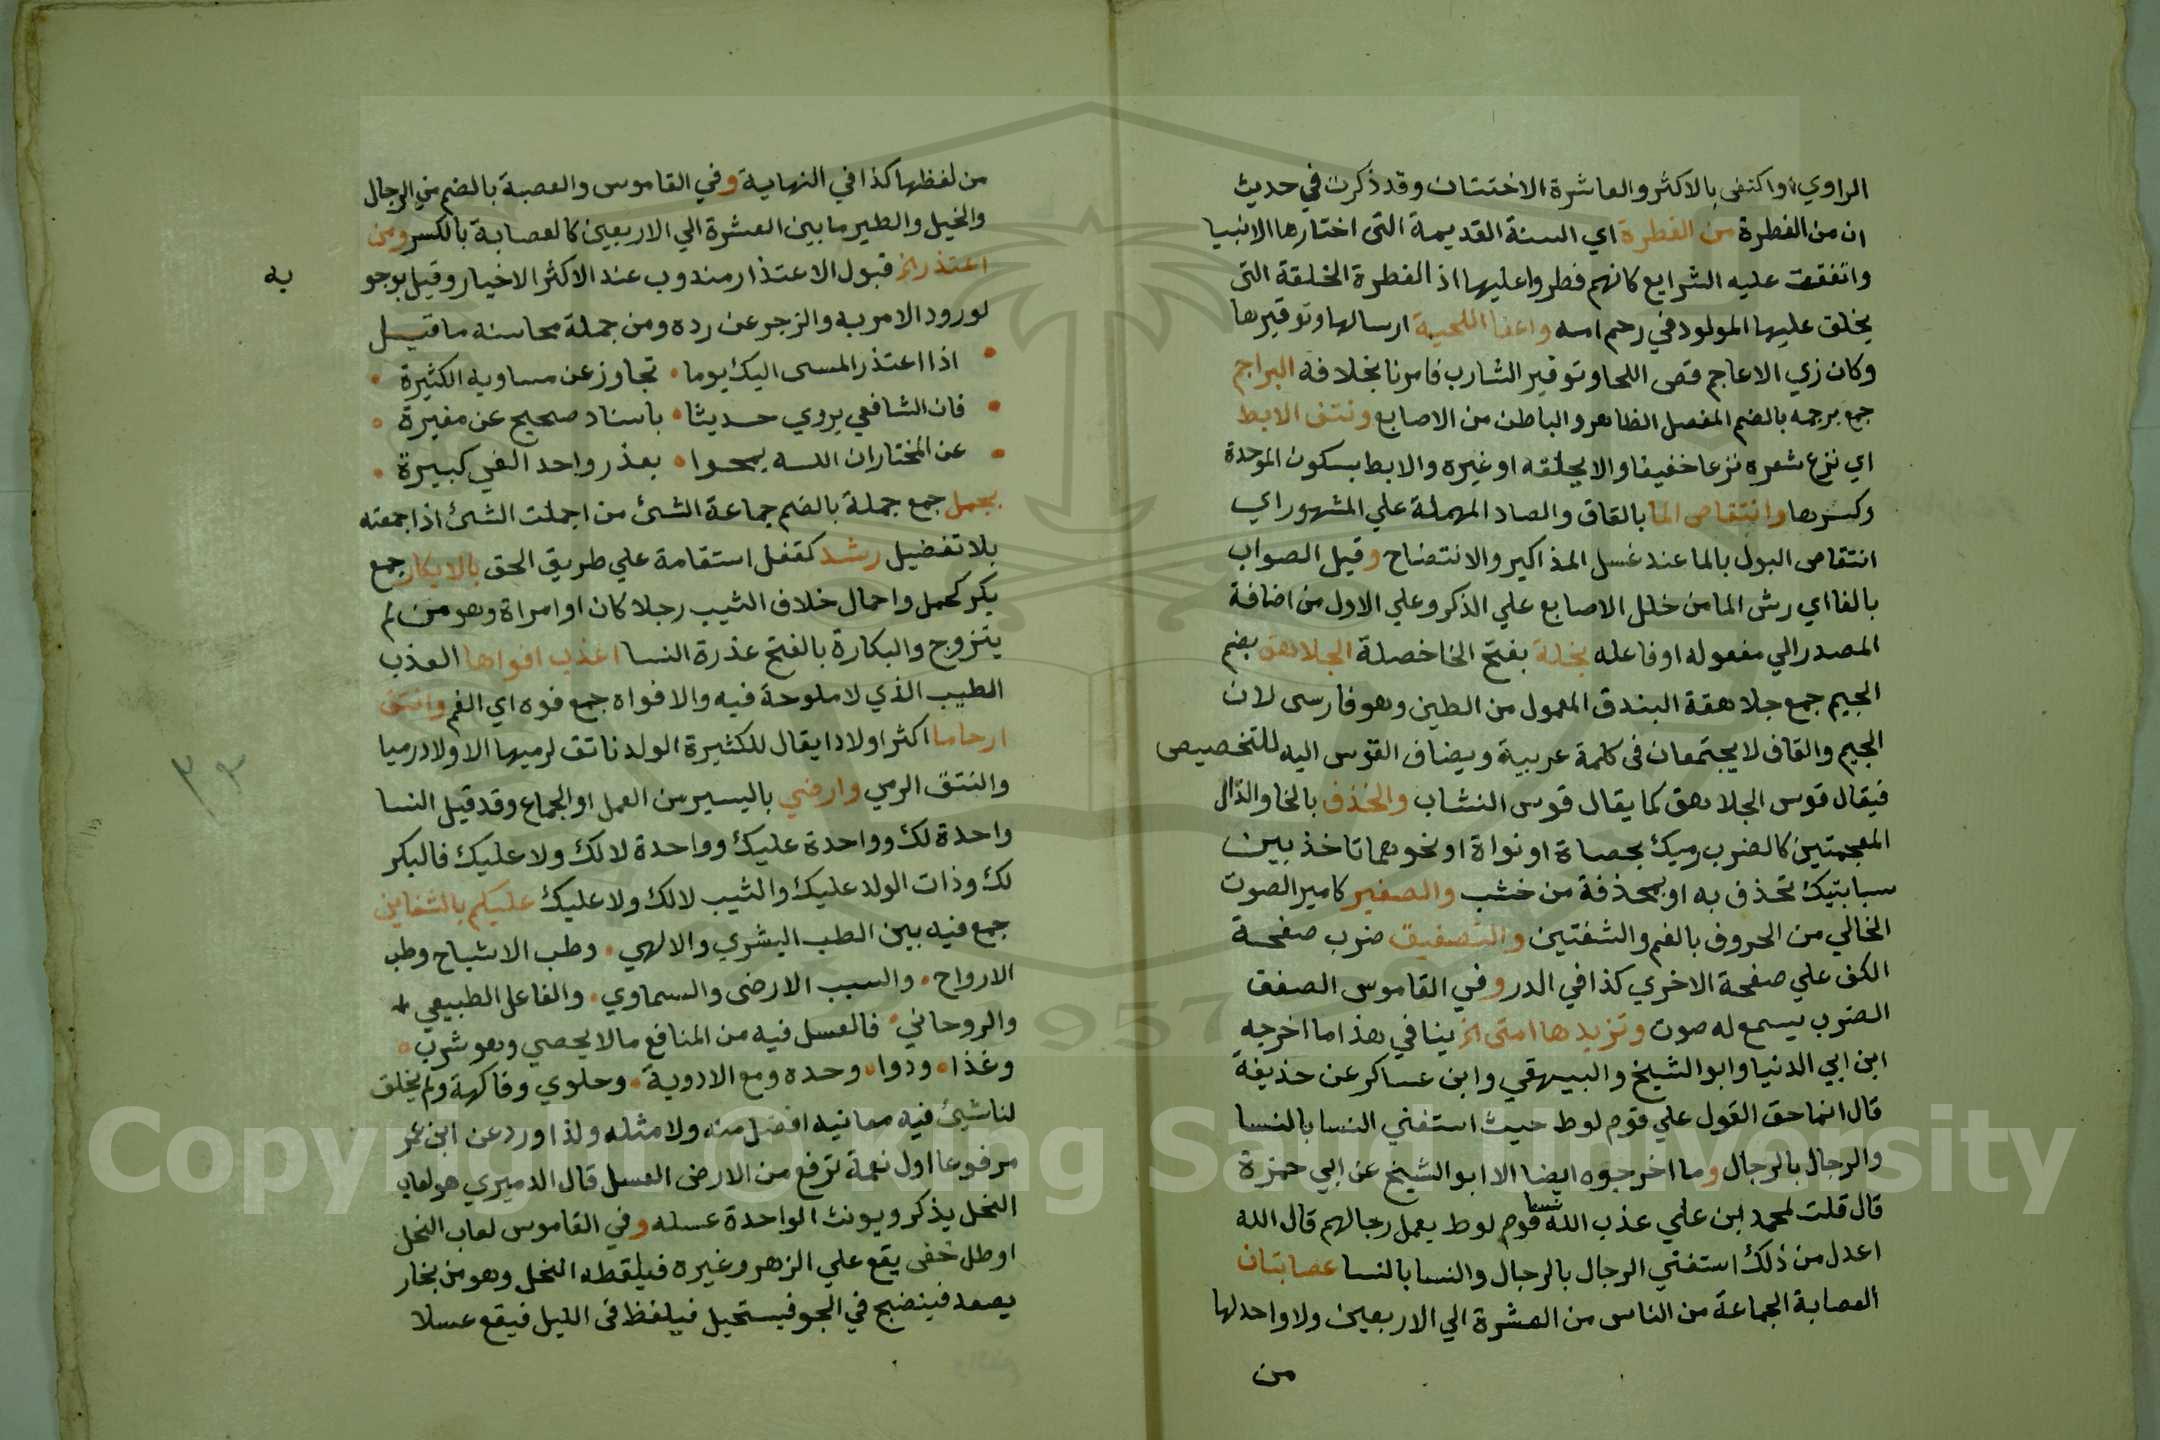 الراوي او اكتفى بالاكثر والعاشرة الاختتان وقد ذكرت في حديث
ان من الفطرة من الفطرة اي السنة القديمة التى اختارها الانبيا
واتفقت عليه الشرايع كانهم فطروا عليها اذ الفطرة الخلقة التى
يخلق عليها المولود في رحم امه واعفا اللحية ارسالها وتوفيرها
وكان زي الاعاجم قص اللحا وتوفير الشارب فامرنا بخلافه البراجم
جمع برجمه بالضم المفصل الظاهر والباطن من الاصابع ونتف الابط
اي نزع شعره نزعا خفيفا والا يحلقه او غيره والابط بسكون الموحدة
وكسرها وانتقاص الما بالقاف والصاد المهملة علي المشهور اي
انتقاص البول بالما عند غسل المذاكير والانتضاح وقيل الصواب
بالفا اي رش الما من خلل الاصابع علي الذكر وعلي الاول من اضافة
المصدر الي مفعوله او فاعله بخلة بفتح الخا خصلة الجلاهق بضم
الجيم جمع جلاهقة البندق المعمول من الطين وهو فارسى لان
الجيم والقاف لا يجتمعان فى كلمة عربية ويضاف القوس اليه للتخصيص
فيقال قوس الجلاهق كما يقال قوس النشاب والخذف بالخا والذال
المعجمتين كالضرب رميك بحصاة او نواة او نحوهما تاخذ بين
سبابتيك تخذف به او بمخذفة من خشب والصفير كامير الصوت
الخالي من الحروف بالفم والشفتين والتصفيق ضرب صفحة
الكف علي صفحة الاخري كذا في الدر وفي القاموس الصفق
الضرب يسمع له صوت وتزيدها امتى الخ ينافي هذا ما اخرجه
ابن ابي الدنيا وابو الشيخ والبيهقي وابن عساكر عن حذيفة
قال انما حق القول علي قوم لوط حيث استغني النسا بالنسا
والرجال بالرجال وما اخرجوه ايضا الا ابو الشيخ عن ابي حمزة
قال قلت لمحمد ابن علي عذب الله نسا قوم لوط بعمل رجالهم قال الله
اعدل من ذلك استغني الرجال بالرجال والنسا بالنسا عصابتان
العصابة الجماعة من الناس من العشرة الي الاربعين ولا واحد لها
من
من لفظها كذا في النهاية وفي القاموس والعصبة بالضم من الرجال
والخيل والطير ما بين العشرة الي الاربعين كالعصابة بالكسر ومن
اعتذر الخ قبول الاعتذار مندوب عند الاكثر الاخيار وقيل بوجو
به
لورود الامر به والزجر عن رده ومن جملة محاسنه ما قيل
اذا اعتذر المسى اليك يوما • تجاوز عن مساويه الكثيرة •
فان الشافعي يروي حديثا • باسناد صحيح عن مغيرة •
عن المختار ان الله يمحوا • بعذر واحد الفي كبيرة •
بجمل جمع جملة بالضم جماعة الشئ من اجملت الشئ اذا جمعته
بلا تفضيل رشد كقفل استقامة علي طريق الحق بالابكار جمع
بكر كحمل واحمال خلاف الثيب رجلا كان او امراة وهو من لم
يتزوج والبكارة بالفتح عذرة النسا اعذب افواها العذب
الطيب الذي لا ملوحة فيه والافواه جمع فوه اي الفم وانتق
ارحاما اكثر اولادا يقال للكثيرة الولد ناتق لرميها الاولاد رميا
والنتق الرمي وارضي باليسير من العمل او الجماع وقد قيل النسا
واحدة لك وواحدة عليك وواحدة لا لك ولا عليك فالبكر
لك وذات الولد عليك والثيب لا لك ولا عليك عليكم بالشفاين
جمع فيه بين الطب البشري والالهي • وطب الاشباح وطب
الارواح • والسبب الارضى والسماوي • والفاعل الطبيعي
والروحاني • فالعسل فيه من المنافع ما لا يحصي وهو شرب •
وغذا • ودوا • وحده ومع الادوية • وحلوي وفاكهة ولم يخلق
لنا شيئ فيه معانيه افضل منه ولا مثله ولذا ورد عن ابن عمر
مرفوعا اول نعمة ترفع من الارض العسل قال الدميري هو لعاب
النحل يذكر ويونث الواحدة عسله وفي القاموس لعاب النحل
او طل خفى يقع علي الزهر وغيره فيلقطه النحل وهو من بخار
يصعد فينضج في الجو فيستحيل فيلفظ فى الليل فيقع عسلا
٣٢
Copyright © King Saud University
1957